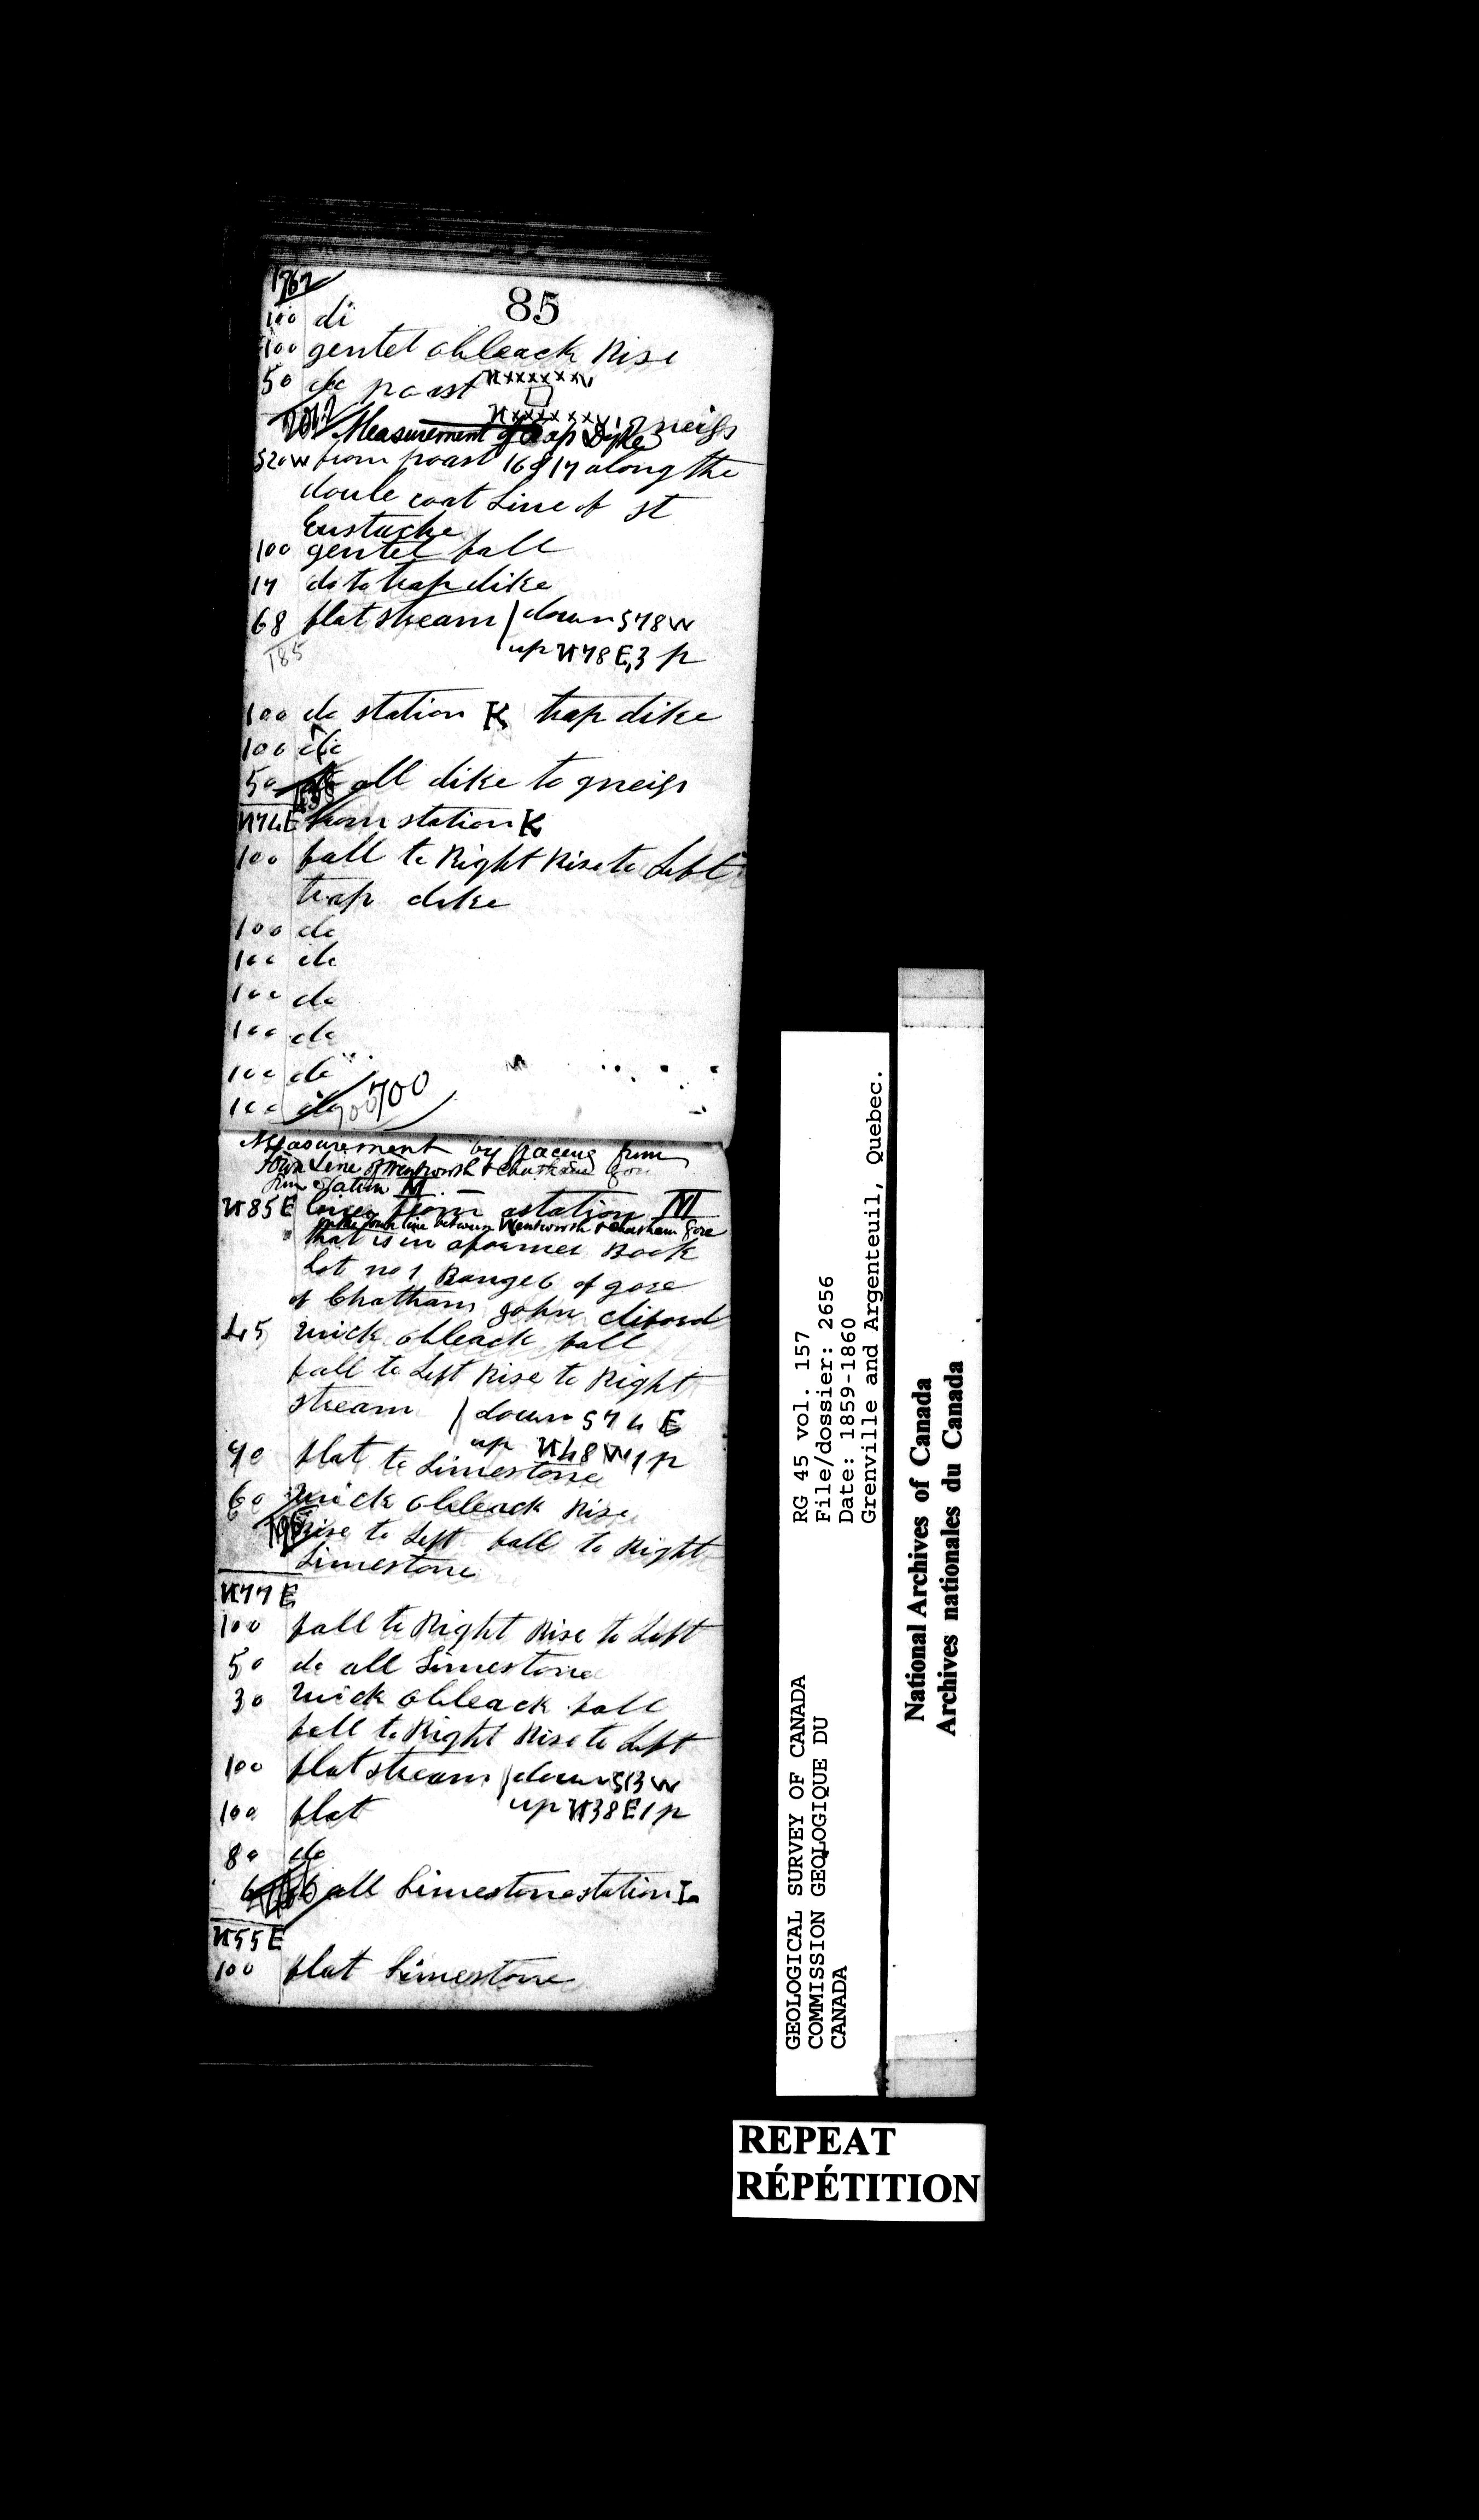 1767
85
100 do
100 gentel obleack Rise
50 do poast NxxxxxxxV
NxxxxxxxV gneiss
Measurement of trap Dyke
S20W from poast 16 & 17 along the
doule coat Line of st
Eustache
100 gentel fall
17 do to trap dike
68 flat stream / down S78W
185 up N78E, 3 p
100 do station K trap dike
100 do
50 all dike to gneiss
N74E from station K
100 fall to Right Rise to Left
trap dike
100 do
100 do
100 do
100 do
100 do
100 do
700 700
Measurement by paceing from
Town Line of Wentworth & Chatham gore
from station M
N85E from station M
on the Town line between Wentworth & Chatham Gore
that is in aformer Book
Lot no 1 Range 6 of gore
of Chatham John cliford
45 quick obleack fall
fall to Left Rise to Right
stream / down S74E
up N48W 1 p
90 flat to Limestone
60 quick obleack Rise
195 Rise to Left fall to Right
Limestone
N77E
100 fall to Right Rise to Left
50 do all Limestone
30 quick obleack fall
fall to Right Rise to Left
100 flat stream / down S13W
100 flat up N38E 1 p
80 do
all Limestone station
N55E
100 flat Limestone
GEOLOGICAL SURVEY OF CANADA
COMMISSION GEOLOGIQUE DU
CANADA
RG 45 vol. 157
File/dossier: 2656
Date: 1859-1860
Grenville and Argenteuil, Quebec.
National Archives of Canada
Archives nationales du Canada
REPEAT
RÉPÉTITION